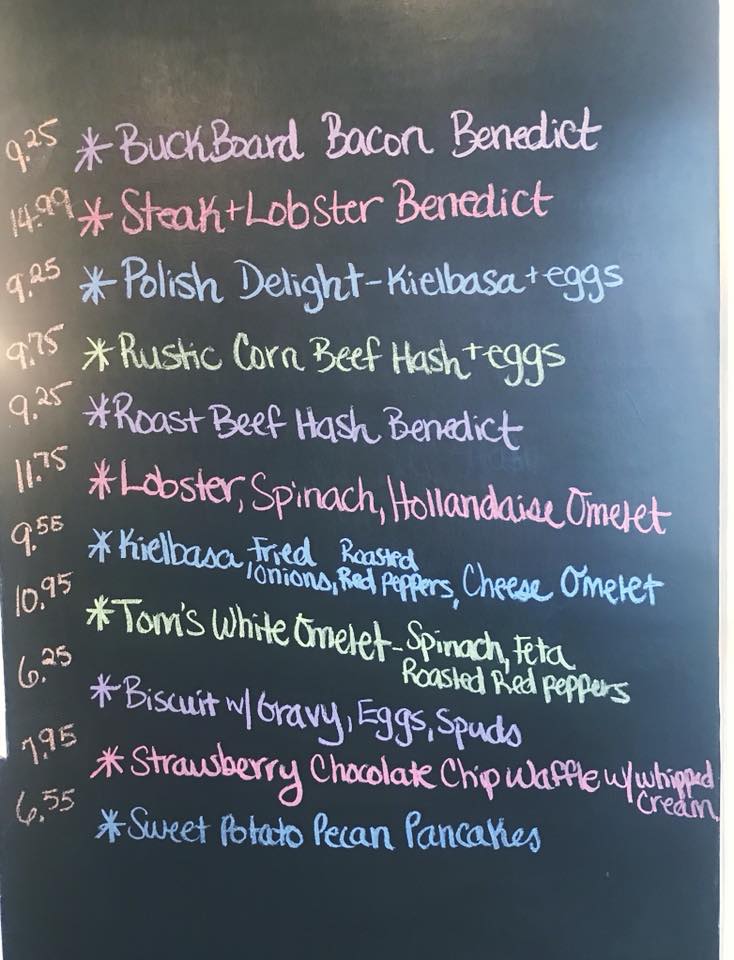 9.25 * BuckBoard Bacon Benedict
14.99 * Steak + Lobster Benedict
9.25 * Polish Delight - Kielbasa + eggs
9.75 * Rustic Corn Beef Hash + eggs
9.25 * Roast Beef Hash Benedict
11.75 * Lobster, Spinach, Hollandaise Omelet
9.55 * Kielbasa, Fried onions, Roasted Red Peppers, Cheese Omelet
10.95 * Tom's White Omelet - Spinach, Feta
Roasted Red peppers
6.25 * Biscuit w/ Gravy, Eggs, Spuds
7.95 * Strawberry Chocolate Chip Waffle w/ whipped
Cream
6.55 * Sweet Potato Pecan Pancakes